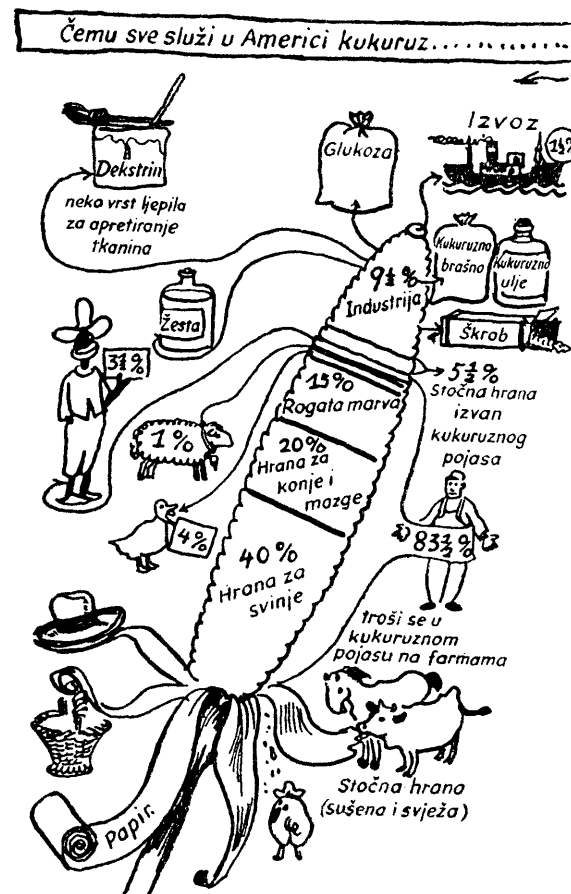 Čemu sve služi u Americi kukuruz
Izvoz
1½%
Glukoza
Dekstrin
neka vrst ljepila
za apretiranje
tkanina
Kukuruzno
brašno
Kukuruzno
ulje
9½%
Industrija
Žesta
Škrob
3½%
5½%
Stočna hrana
izvan
kukuruznog
pojasa
15%
Rogata marva
1%
20%
Hrana za
konje i
mazge
4%
83½%
40%
Hrana za
svinje
troši se u
kukuruznom
pojasu na farmama
Stočna hrana
(sušena i svježa)
Papir.